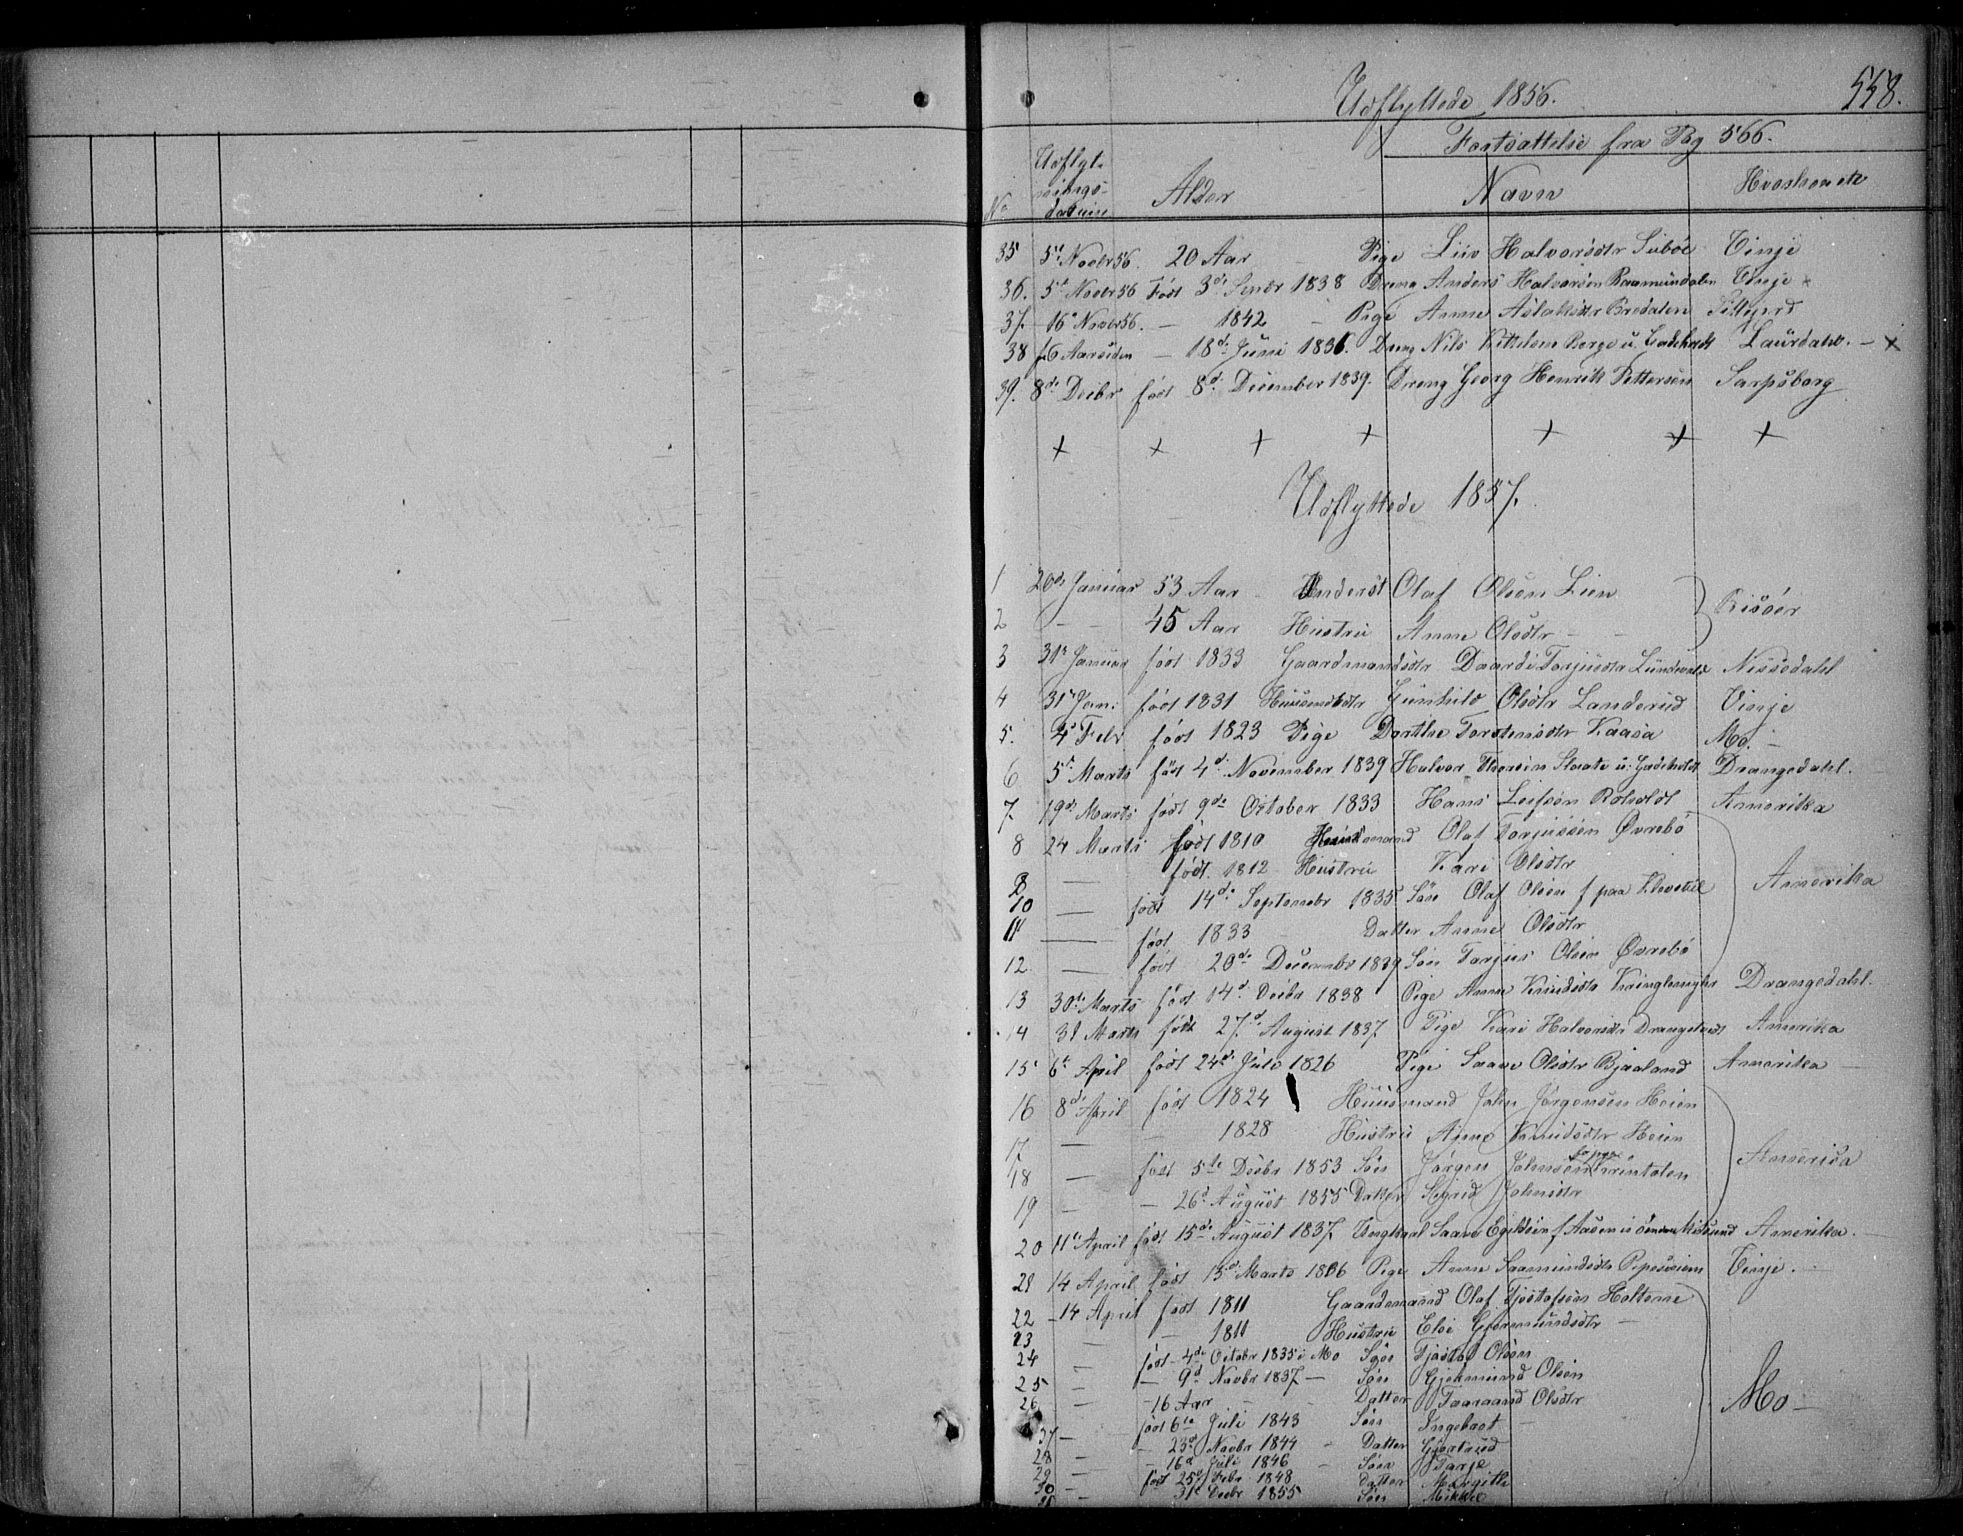 Udflyttede 1856. 558.
Fortsættelse fra Pag 566.
No Udflyt- nings- datum Alder Navn Hvorhen etc
35 5t Novbr 56. 20 Aar Pige Liv Halvorsdtr Subøe Vinje
36. 5t Novbr 56 Født 3d 1838 Dreng Anders Halvorsen Raamundalen Vinje
37. 16d Novbr 56. — 1842 — Pige Anne Aslaksdtr Bredalen
38 16 Aarsiden — 18d Juni 1836. Dreng Nils Kittilsen Berge u. Laurdahl. —
39. 8de Decbr født 8d December 1839. Dreng Georg Henrik Pettersen Sarpsborg
+ + + + + + +
Udflyttede 1857.
1 20de Januar 53 Aar Olaf Olsen Lien Risøer
2 — — 45 Aar Hustru Anne Olsdtr — —
3 31t Januar født 1833 Gaardmandsdtr Daardi Torjusdtr Nissedahl
4 31t Jan: født 1831 Huusmdsdtr Gunhild Olsdtr Landerud Vinje
5. 4d Febr født 1823 Pige Dorthe Torstensdtr Kaasa Mo. —
6 5t Marts født 4d November 1839 Halvor Staate u. Drangedahl.
7. 19de Marts født 9de October 1833 Hans Leifsen Rolvolt Amerika
8 24 Marts født 1810 Huusmand Olaf Torjussen Øvrebø
9 — født. 1812 Hustru Kari Olsdtr
10 — født 14de Septembr 1835 Søn Olaf Olsen f paa Amerika
11 — født 1833 Datter Anne Olsdtr
12. — født 20de Decembr 1839 Søn Torjus Olsen Øvrebø
13 30te Marts født 14d Decbr 1838 Pige Anne Knudsdtr Drangedahl.
14 31 Marts født 27d August 1837 Pige Kari Halvorsdtr Amerika
15 6t April født 24d Juli 1826 Pige Saave Olsdtr Bjaaland Amerika —
16 8de April født 1824 Huusmand John Jørgensen Heien
17 — — 1828 Hustru Anne Knudsdtr Heien
18 — født 5te Decbr 1853 Søn Jørgen Johnsen Amerika
19 — — 26d August 1855 Datter Sigrid Johnsdtr
20 11te April født 15de August 1837 Ungkaal Saave Egildsen f Aasen i Amerika.
21 14 April født 13d Marts 1806 Pige Anne Saamundsdtr Vinje.
22 14 April født 1811 Gaardmand Olaf Tjostofsen Holtene
23 — — 1811 Hustru Else Gjermundsdtr —
24 — født 4de Octobr 1835 i Mo Søn Tjostol Olsen
25 — — 9d Novbr 1837 — Søn Gjermund Olsen
26 — — 16 Aar — Datter Taaraand Olsdtr Mo —
27 — født 6te Juli 1843 Søn Ingebret —
28 — — 23d Novbr 1844 — Datter Gjertrud
29 — — 16d Juli 1846 — Søn Tarje
30 — født 25d Febr 1848 Datter Margithe
31 — — 31t Decbr 1855 Søn Mikkel